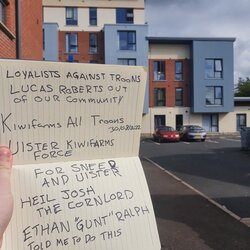 LOYALISTS AGAINST TROONS
LUCAS ROBERTS OUT
OF OUR COMMUNITY
Kiwifarms All Troons
30/08/2022
ULSTER KIWIFARMS
FORCE
FOR SNEED
AND ULSTER
HEIL JOSH
THE CORNLORD
ETHAN "GUNT" RALPH
TOLD ME TO DO THIS